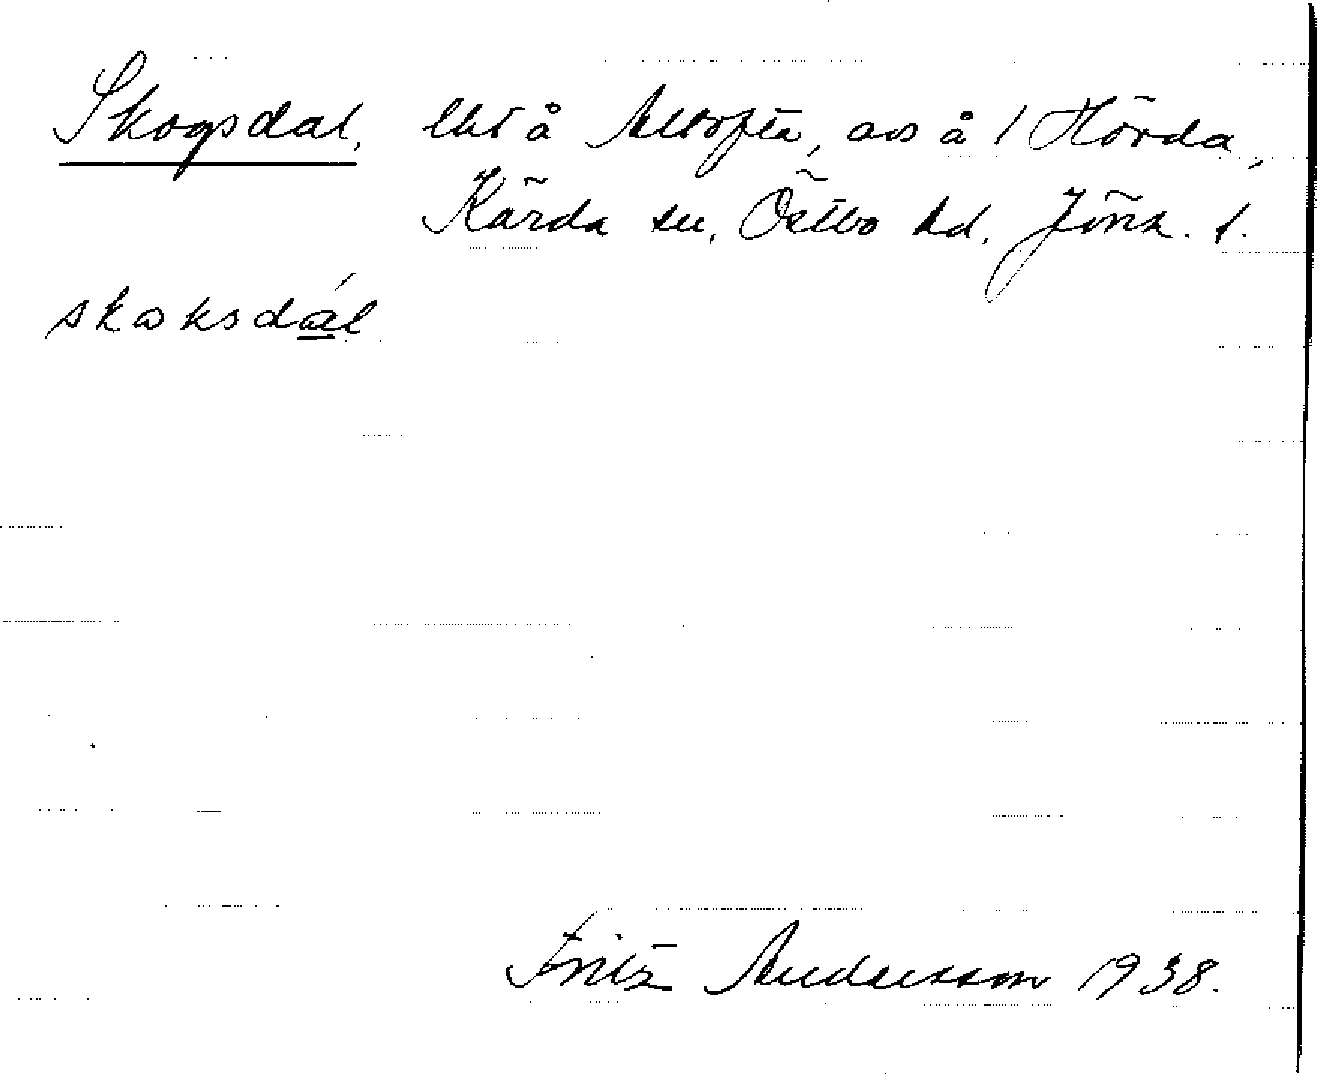 Skogsdal, lht å Altofta, avs å 1 Hörda,
Kärda sn, Östbo hd, Jönk. l.
skoksdál
Fritz Andersson 1938.